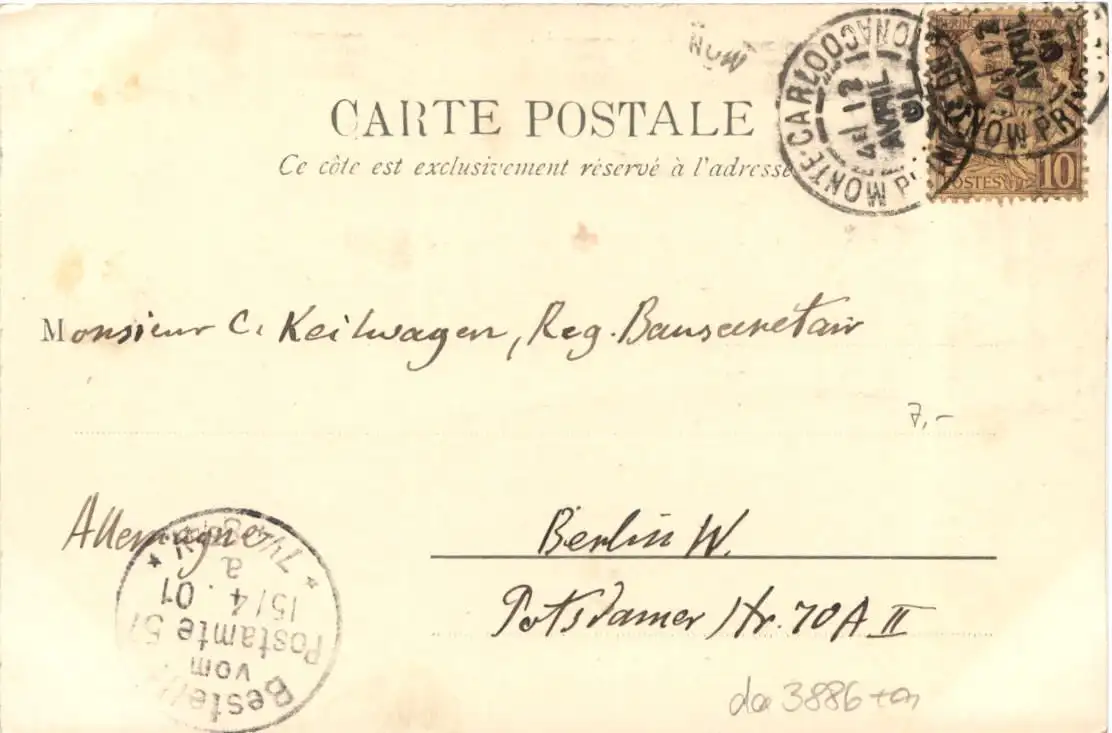 CARTE POSTALE
Ce côté est exclusivement réservé à l'adresse
MONTE-CARLO MONACO
4E 12
AVRIL
01
POSTES 10
Monsieur C. Keilwagen, Reg. Bausecretair
7,-
Allemagne
Berlin W.
Potsdamer Str. 70A II
Bestellt
vom
Postamte 57
15/4. 01
a